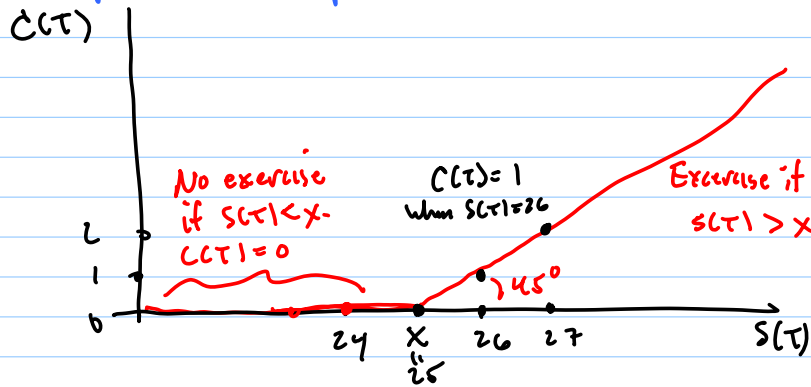 C(T)
No exercise
if S(T)<X.
C(T)=0
C(T)=1
when S(T)=26
Excercise if
S(T)>X
2
1
45°
0
24 X 26 27 S(T)
"
25